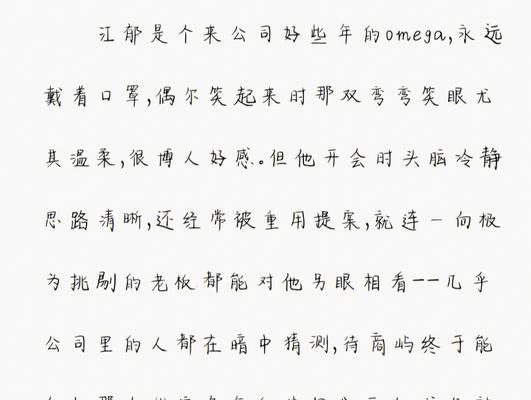 江郁是个来公司好些年的omega,永远
戴着口罩,偶尔笑起来时那双弯弯笑眼尤
其温柔,很博人好感。但他开会时头脑冷静
思路清晰,还经常被重用提案,就连一向极
为挑剔的老板都能对他另眼相看——几乎
公司里的人都在暗中猜测,待商屿终于能